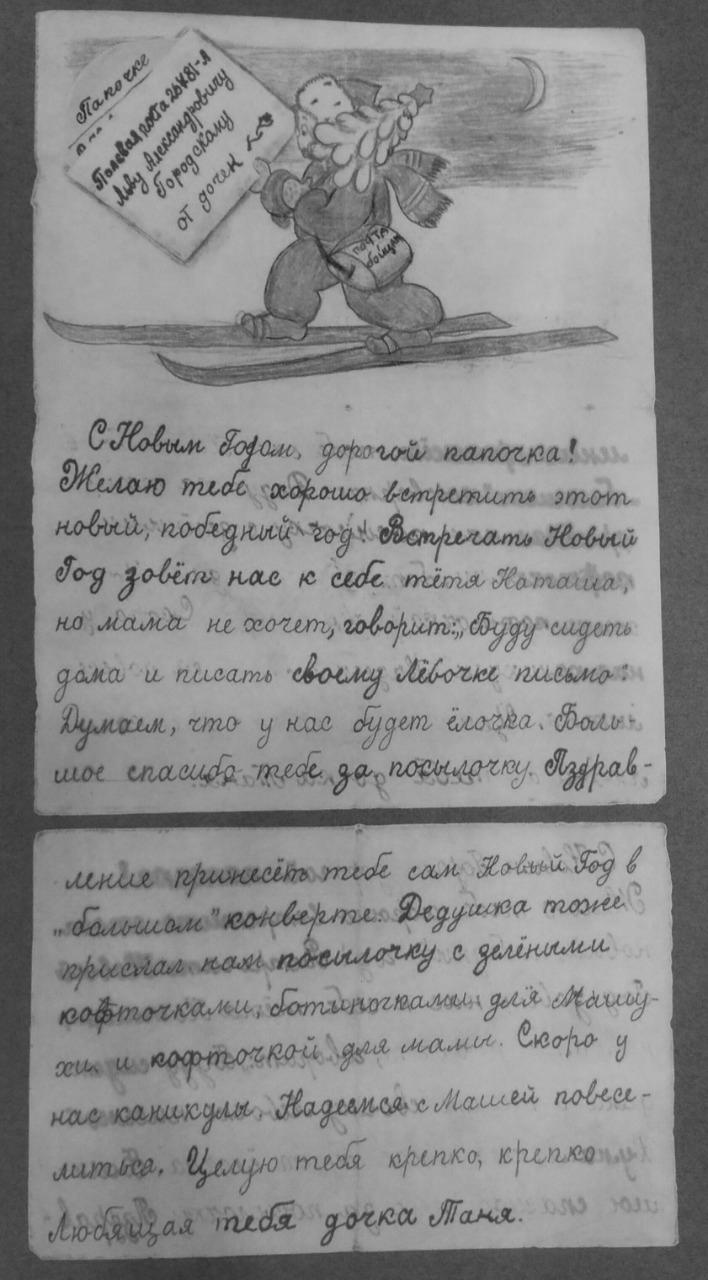 Папочке
Полевая почта 26481-Л
Льву Александровичу
Городскому
от дочек
ПОЧТА
бойцам
С Новым Годом, дорогой папочка!
Желаю тебе хорошо встретить этот
новый, победный год! Встречать Новый
Год зовёт нас к себе тётя Наташа,
но мама не хочет, говорит: „Буду сидеть
дома и писать своему Лёвочке письмо".
Думаем, что у нас будет ёлочка. Боль-
шое спасибо тебе за посылочку. Пздрав-
ление принесёт тебе сам Новый Год в
„большом" конверте. Дедушка тоже
прислал нам посылочку с зелёными
кофточками, ботиночками для Машу-
хи и кофточкой для мамы. Скоро у
нас каникулы. Надеемся с Машей повесе-
литься. Целую тебя крепко, крепко
Любящая тебя дочка Таня.